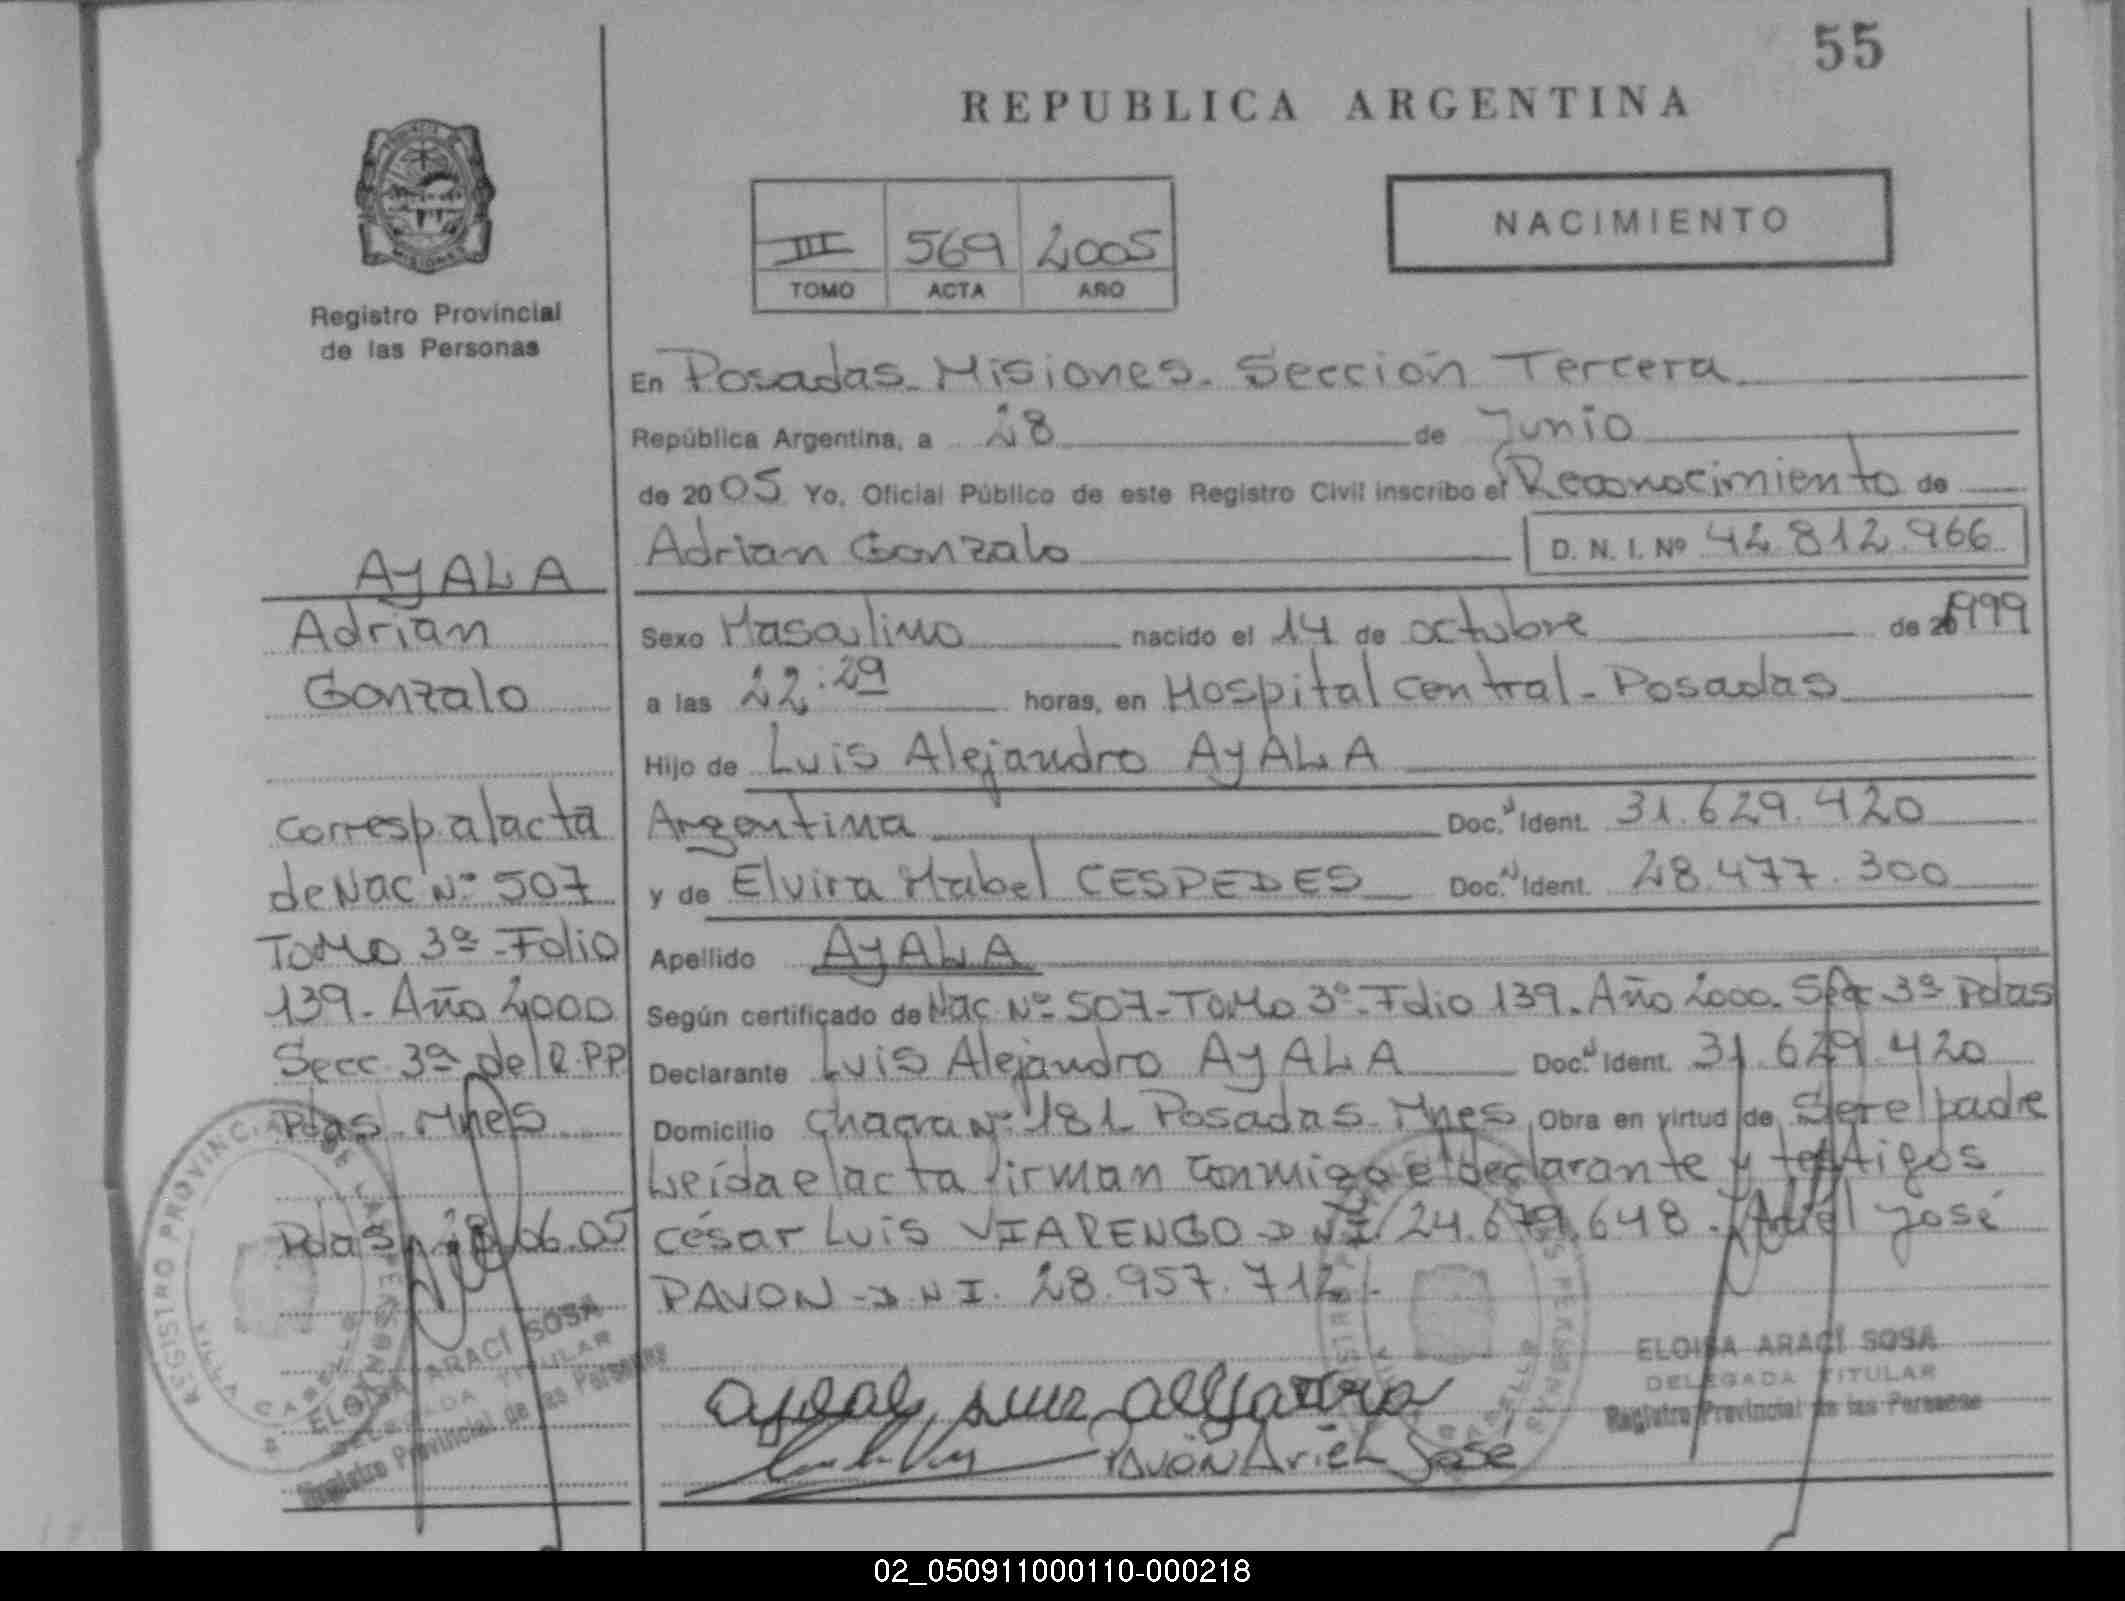 55
REPUBLICA ARGENTINA
NACIMIENTO
III 569 2005
TOMO ACTA AÑO
Registro Provincial
de las Personas
En Posadas - Misiones - Sección Tercera
República Argentina, a 28 de Junio
de 2005 Yo, Oficial Público de este Registro Civil inscribo el Reconocimiento de
Adrian Gonzalo D. N. I. Nº 42.812.966
Sexo Masculino nacido el 14 de octubre de 1999
a las 22:29 horas, en Hospital Central - Posadas
Hijo de Luis Alejandro AYALA
Argentina Doc. Ident. 31.629.420
y de Elvira Mabel CESPEDES Doc. Ident. 28.477.300
Apellido AYALA
Según certificado de Nac Nº 507 - Tomo 3º - Folio 139 - Año 2000 - Secc 3ª Pdas
Declarante Luis Alejandro AYALA Doc. Ident. 31.629.420
Domicilio Chacra Nº 181 Posadas - Mnes Obra en virtud de Ser el padre
Leída el acta firman conmigo el declarante y testigos
César Luis VIARENGO D N I 24.679.648 - Ariel José
PAVON - D N I. 28.957.712 -
AYALA
Adrian
Gonzalo
Corresp al acta
de Nac Nº 507
Tomo 3º - Folio
139 - Año 2000
Secc 3ª del R.P.P
Pdas - Mnes
Pdas 28/06.05
REGISTRO PROVINCIAL DE LAS PERSONAS
VILLA CABELLO
ELOISA ARACÍ SOSA
DELEGADA TITULAR
Registro Provincial de las Personas
Ayala, Luis Alejandro
PAVON Ariel José
ELOISA ARACÍ SOSA
DELEGADA TITULAR
Registro Provincial de las Personas
02_050911000110-000218